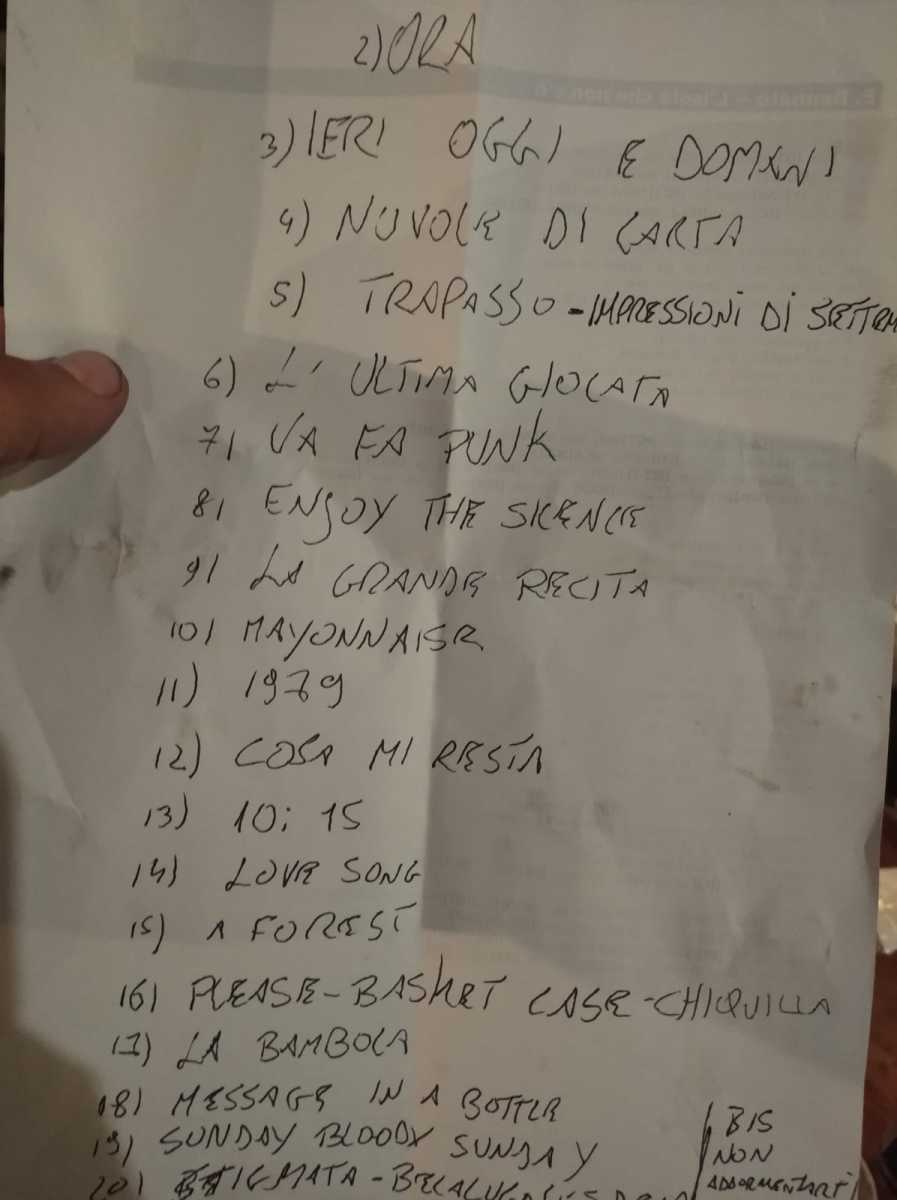 2) ORA
3) IERI OGGI E DOMANI
4) NUVOLE DI CARTA
5) TRAPASSO - IMPRESSIONI DI SETTEM
6) L' ULTIMA GIOCATA
7) VA FA PUNK
8) ENJOY THE SILENCE
9) LA GRANDE RECITA
10) MAYONNAISE
11) 1979
12) COSA MI RESTA
13) 10:15
14) LOVE SONG
15) A FOREST
16) PLEASE - BASKET CASE - CHIQUILLA
17) LA BAMBOLA
18) MESSAGE IN A BOTTLE
19) SUNDAY BLOODY SUNDAY
20) STIGMATA -
BIS
NON
ADDORMENTARTI